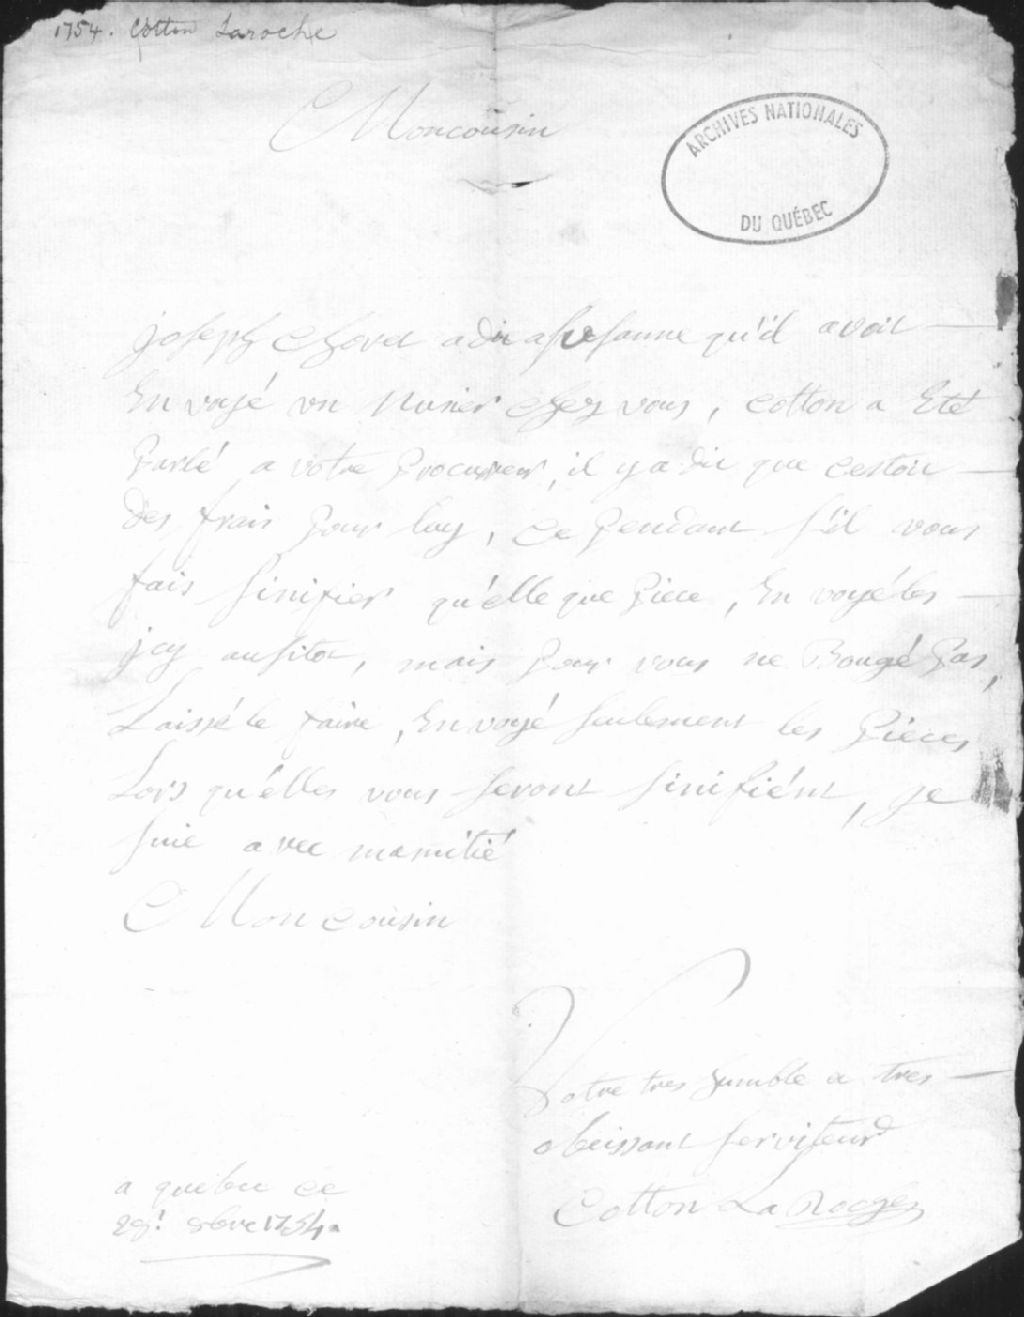 1754. Cotton Laroche
Moncousin
ARCHIVES NATIONALES
DU QUÉBEC
joseph Choret a dit a susanne qu'il avoit
En voyé un husier chez vous, cotton a Eté
Parlé a votre Procureur, il y a dit que cestoit
des frais pour luy, ce pendant s'il vous
fais sinifier qu'elle que Piece, En voyé les
jcy ausitot, mais pour vous ne Bougé Pas,
Laissé le faire, En voyé seulement les Pièces
Lors qu'elles vous seront sinifiént, je
suie avec mamitié
Mon cousin
Votre tres humble a tres
obeissant serviteur
Cotton La Roche
a quebec ce
29: 8bre 1754.